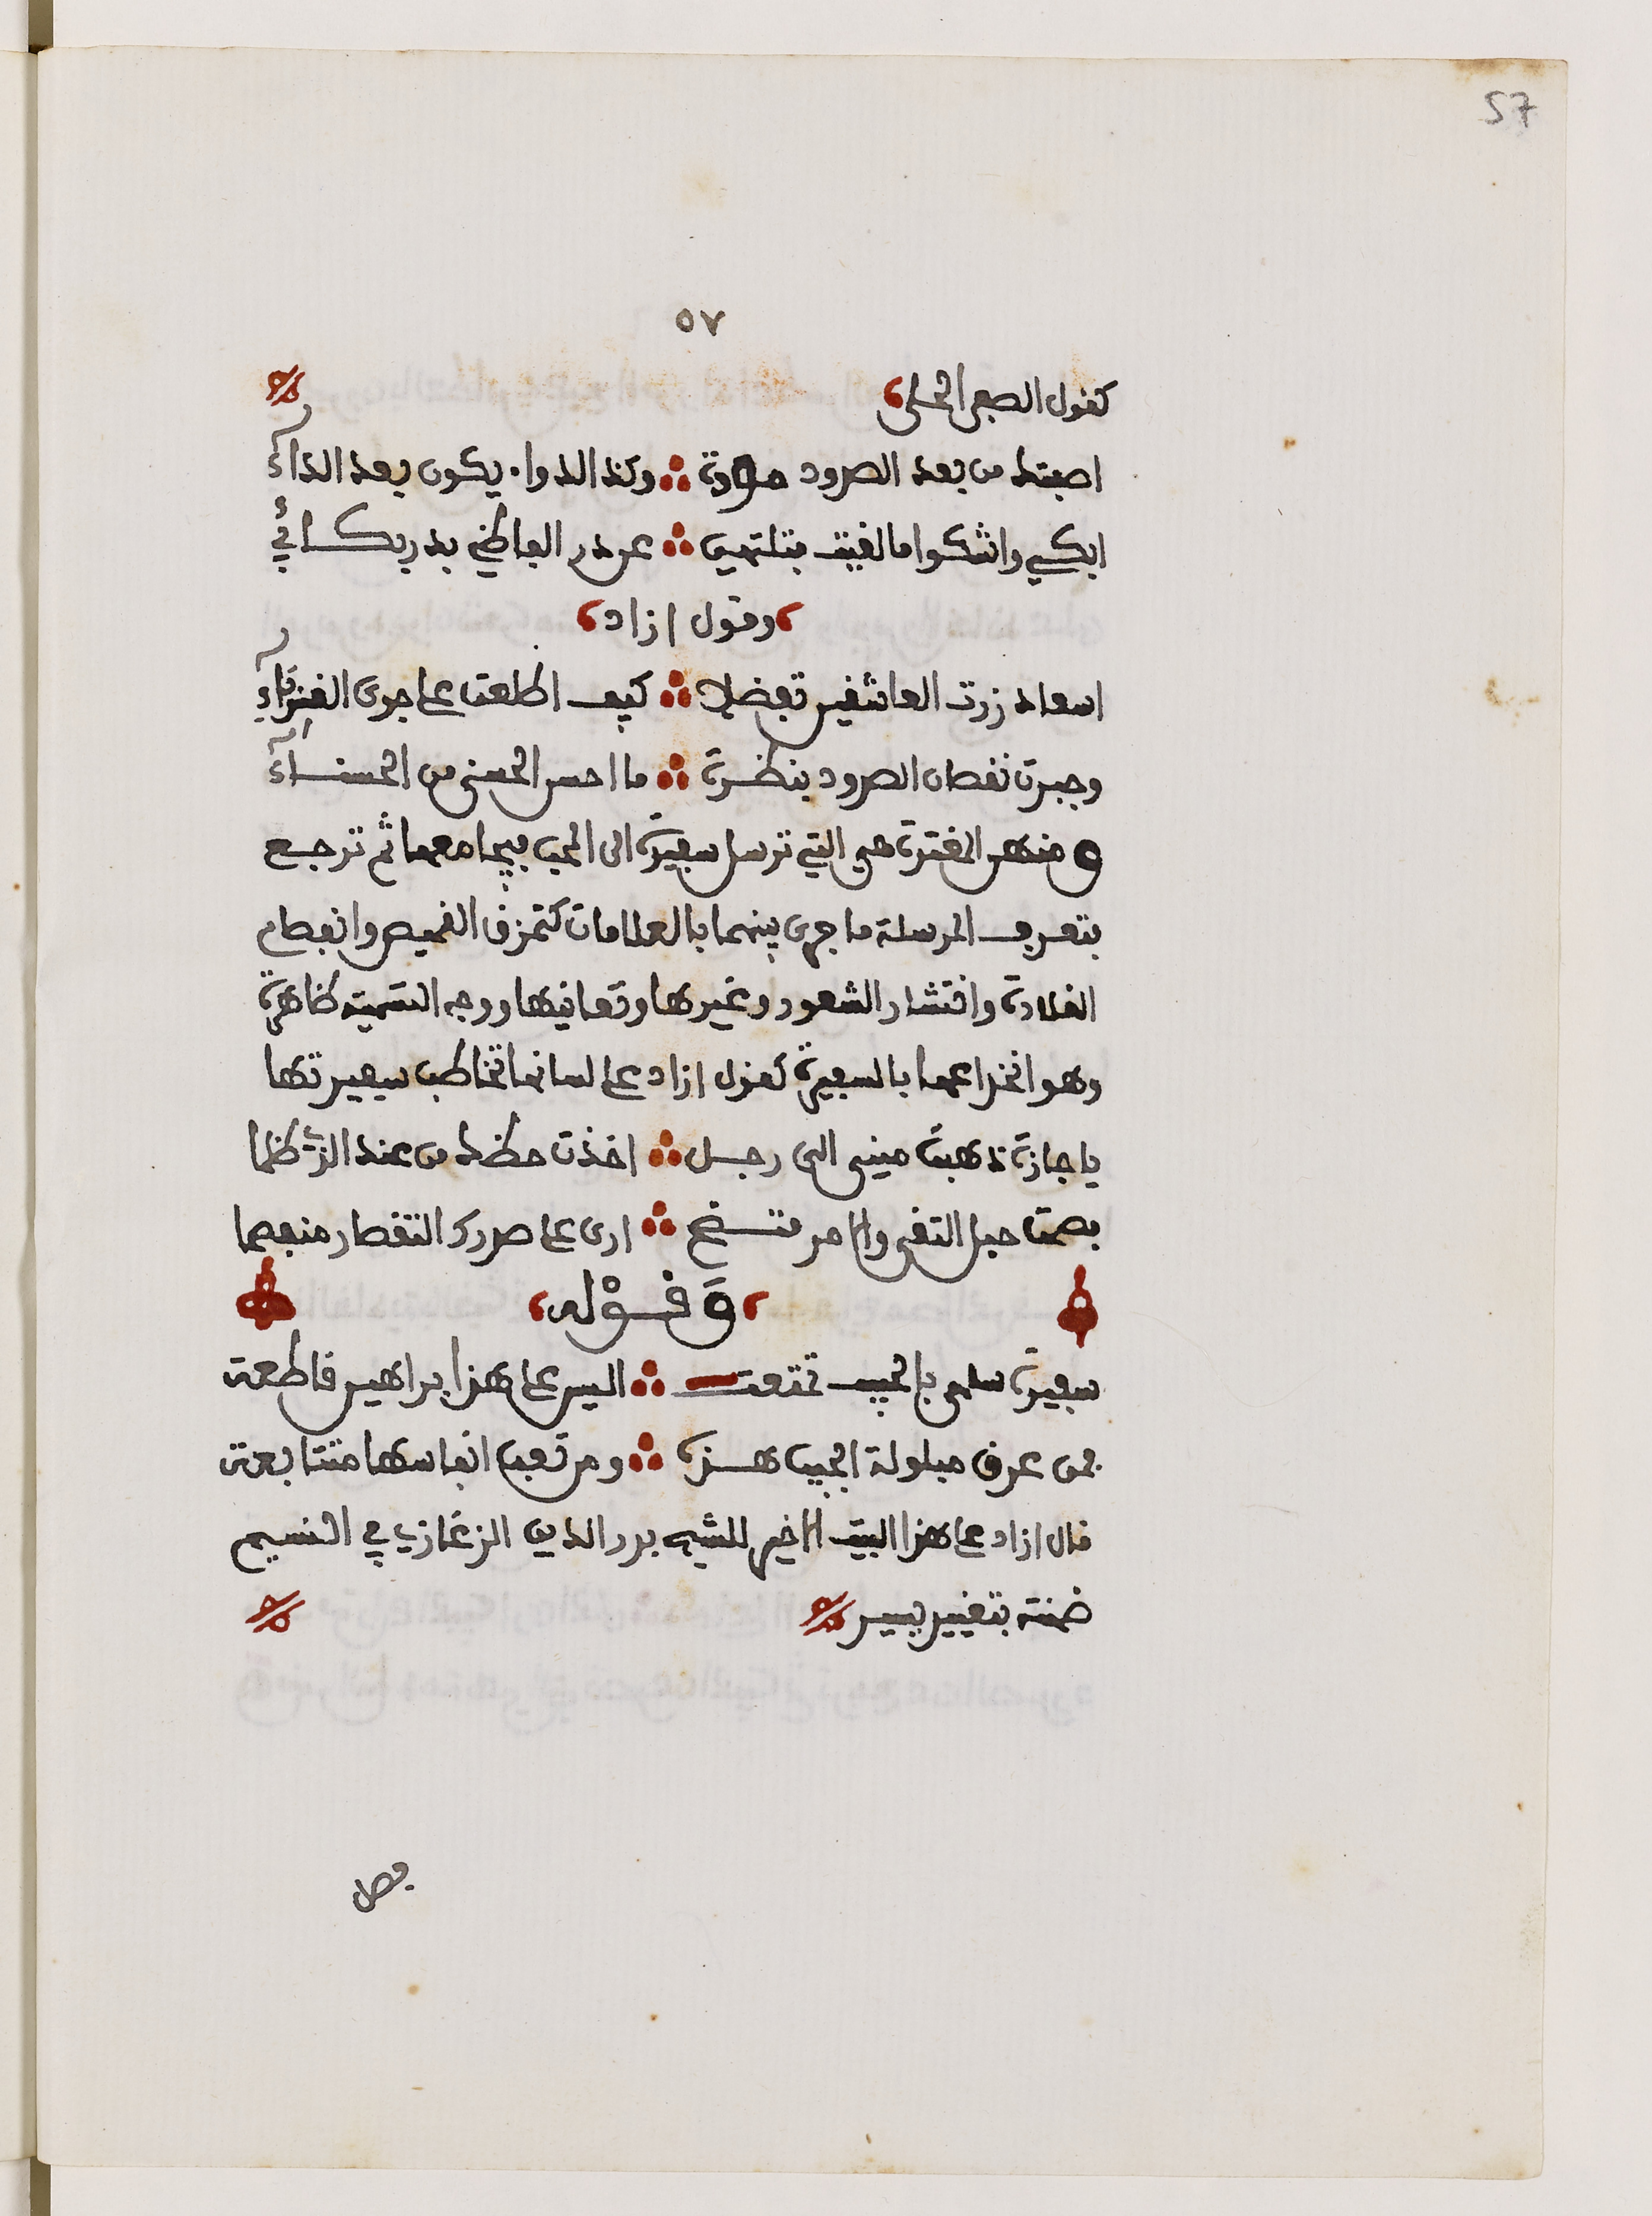 57
٥٧
كقول الصفي الحلي
اصبتك من بعد الصدود مودة وكذا الدواء يكون بعد الداء
ابكي واشكوا ما لقيت فتلتهي عن در الفاظي بدر بكائي
وقول ازاد
اسعاد زرت العاشقين تفضلا كيف اطلعت على جوى الغرباء
وجبرت نقصان الصدود بنظرة ما احسن الحسنى من الحسناء
ومنهن المغترة هي التي ترسل سفيرة الى الحب فيجامعها ثم ترجع
فتعرف المرسلة ما جرى بينهما بالعلامات كتمزق القميص وانفصام
القلادة وانتشار الشعور وغيرها وتعاتبها ووجه التسمية ظاهرة
وهو انخداعها بالسفيرة كقول ازاد على لسانها تخاطب سفيرتها
يا جارة ذهبت مني الى رجل اخذت حظك من عند الذي ظلما
فصمت حبل التقى والامر متضح ارى على صدرك التقصار منفصما
وقوله
سفيرة سلمى بالحبيب تمتعت اليس على هذا براهين قاطعة
فمن عرق مبلولة الجيب هذه ومن تعب انفاسها متتابعة
قال ازاد على هذا البيت الاخير للشيخ بدر الدين الزغازي في النسيم
ضمنته بتغيير يسير
فصل